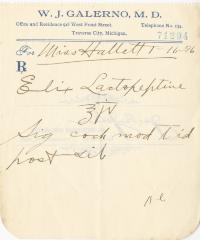 W. J. GALERNO, M. D.
Office and Residence 541 West Front Street.
Telephone No. 134.
Traverse City, Michigan.
71294
For Miss Hallett 1-16-96
℞
Elix Lactopeptine
℥iv
Sig coch mod t id
post cib